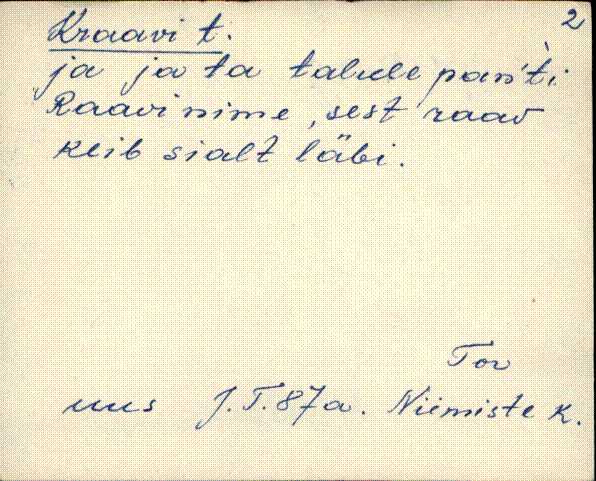 2
Kraavi t.
ja ja ta talule pan'ti
Raavi nime, sest raav
keib sialt läbi.
Tor
uus J.T.87a. Niimiste k.